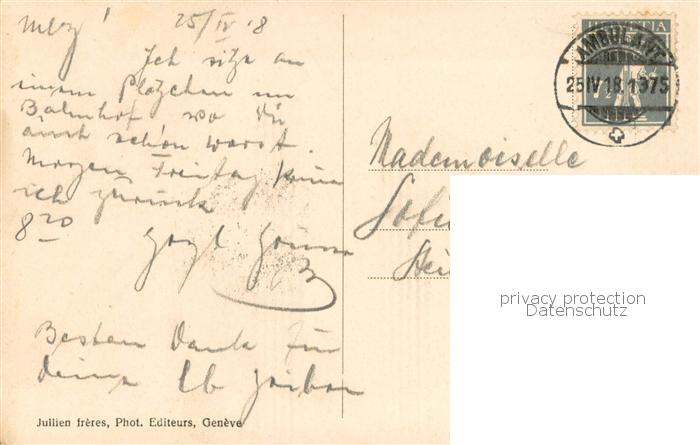 25/IV 18
Ich sitze an
einem Plätzchen im
Bahnhof wo Du
auch schon warst.
Morgen Freitag komme
ich zurück
8 20
Besten Dank für
Deine lb
Jullien frères, Phot. Editeurs, Genève
HELVETIA
7½
AMBULANT
25 IV 18. 1975
Mademoiselle
privacy protection
Datenschutz